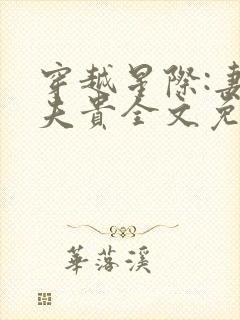 穿越星際:妻
夫貴全文免
華落溪